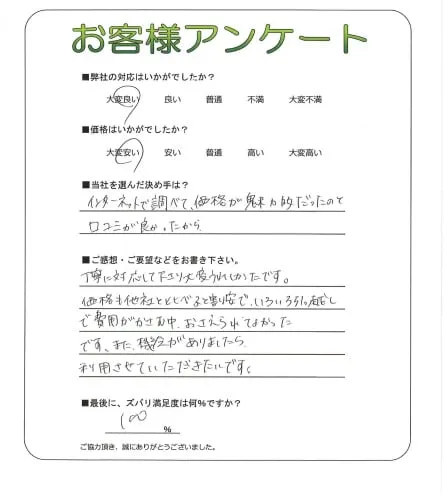 お客様アンケート
■弊社の対応はいかがでしたか？
大変良い 良い 普通 不満 大変不満
■価格はいかがでしたか？
大変安い 安い 普通 高い 大変高い
■当社を選んだ決め手は？
インターネットで調べて、価格が魅力的だったのと
口コミが良かったから
■ご感想・ご要望などをお書き下さい。
丁寧に対応して下さり大変うれしかたです。
価格も他社とくらべると割り安で、いろいろ引っ越し
で費用がかさむ中、おさえられてよかった
です。また、機会がありましたら
利用させていただきたいです。
■最後に、ズバリ満足度は何％ですか？
100 %
ご協力頂き、誠にありがとうございました。